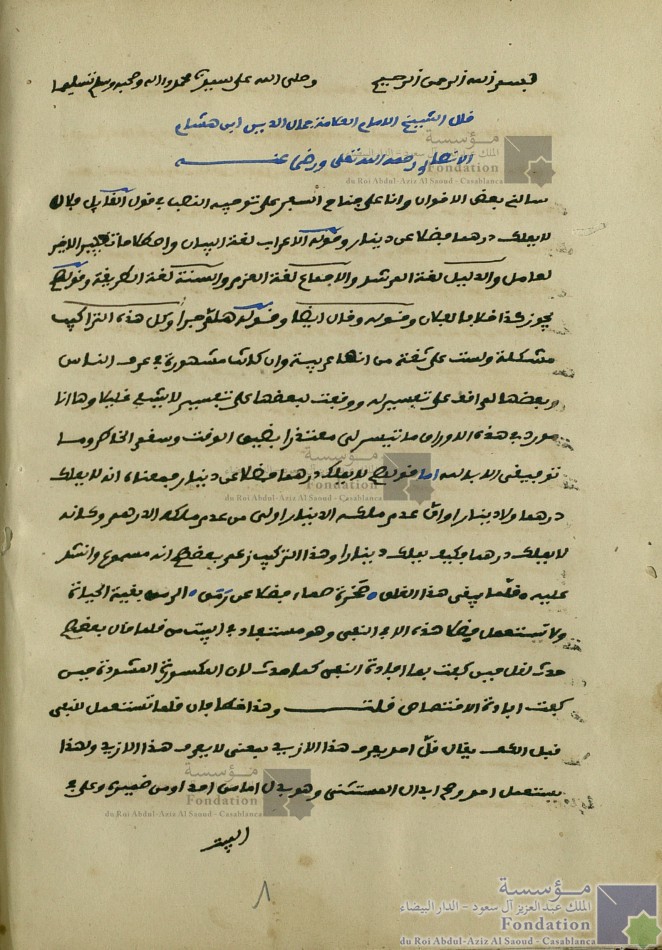 بسم الله الرحمن الرحيم وصلى الله على سيدنا محمد واله وصحبه وسلم تسليما
قال الشيخ الامام العلامة جمال الدين ابن هشام
الانصاري رحمه الله تعلى ورضي عنه
سالني بعض الاخوان وانا على جناح السفر على توجيه النصب في قول القائل فلان
لا يملك درهما فضلا عن دينار وقوله الاعراب لغة البيان واصطلاحا تغيير الاخر
لعامل والدليل لغة المرشد والاجماع لغة العزم والسنة لغة الطريقة وقولهم
يجوز كذا خلافا لفلان وقوله وقال ايضا وقوله هلم جرا وكل هذه التراكيب
مشكلة ولست على ثقة من انها عربية وان كانت مشهورة في عرف الناس
وبعضها لم اقف على تفسير له ووقفت لبعضها على تفسير لا يشفي غليلا وها انا
مورد في هذه الاوراق ما تيسر لي معتذرا بضيق الوقت وسقم الخاطر وما
توفيقي الا بالله اما قولهم لا يملك درهما فضلا عن دينار فمعناه انه لا يملك
درهما ولا دينارا وان عدم ملكه الدينار اولى من عدم ملكه الدرهم وكانه
لا يملك درهما فكيف يملك دينارا وهذا التركيب زعم بعضهم انه مسموع وانشد
عليه قلما يبقى على هذا القلق صخرة صماء فضلا عن رمق
ولا تستعمل فضلا هذه الا في النفي وهو مستفاد في البيت من قلما قال بعضهم
حدث لقل حين كفت بما افادة النفي كما حدث لان المكسورة المشددة حين
كفت افادة الاختصاص قلت وهذا خطا فان قلما تستعمل للنفي
قبل الكف يقال قل احد يعرف هذا الا زيد بمعنى لا يعرف هذا الا زيد ولهذا
يستعمل احد وصح ابدال المستثنى وهو بدل اما من احد او من ضميره وعلى في
البيت
٨
مؤسسة
الملك عبد العزيز آل سعود - الدار البيضاء
Fondation
du Roi Abdul-Aziz Al Saoud - Casablanca